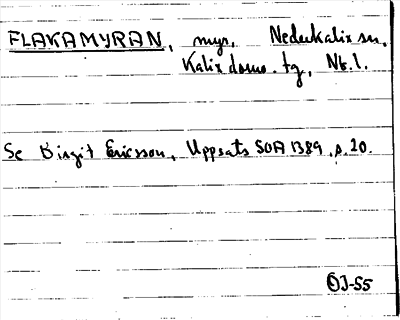 FLAKAMYRAN, myr, Nederkalix sn,
Kalix doms. tg, Nb. l.
Se Birgit Ericsson, Uppsats SOA 1389, s. 20.
OJ-55